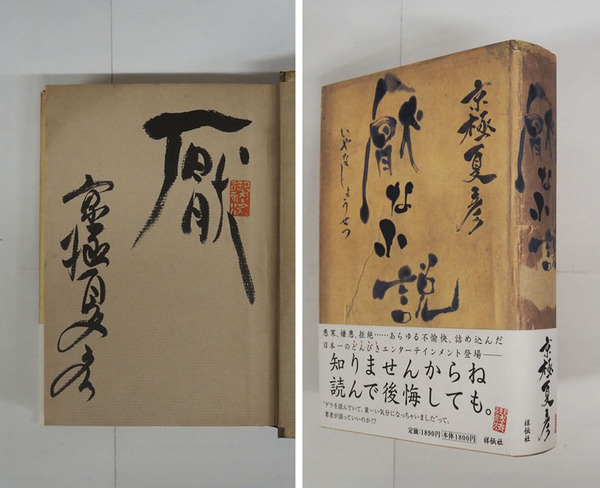 厭
京極夏彦
厭な小説
いやなしょうせつ
京極夏彦
悪寒、嫌悪、拒絶……あらゆる不愉快、詰め込んだ
日本一のどんびきエンターテインメント登場――
知りませんからね
読んで後悔しても。
"ゲラを読んでいて、重〜い気分になっちゃいました"って、
著者が語っていいのか!?
定価:1890円 本体1800円 祥伝社
厭な小説
京極夏彦
祥伝社